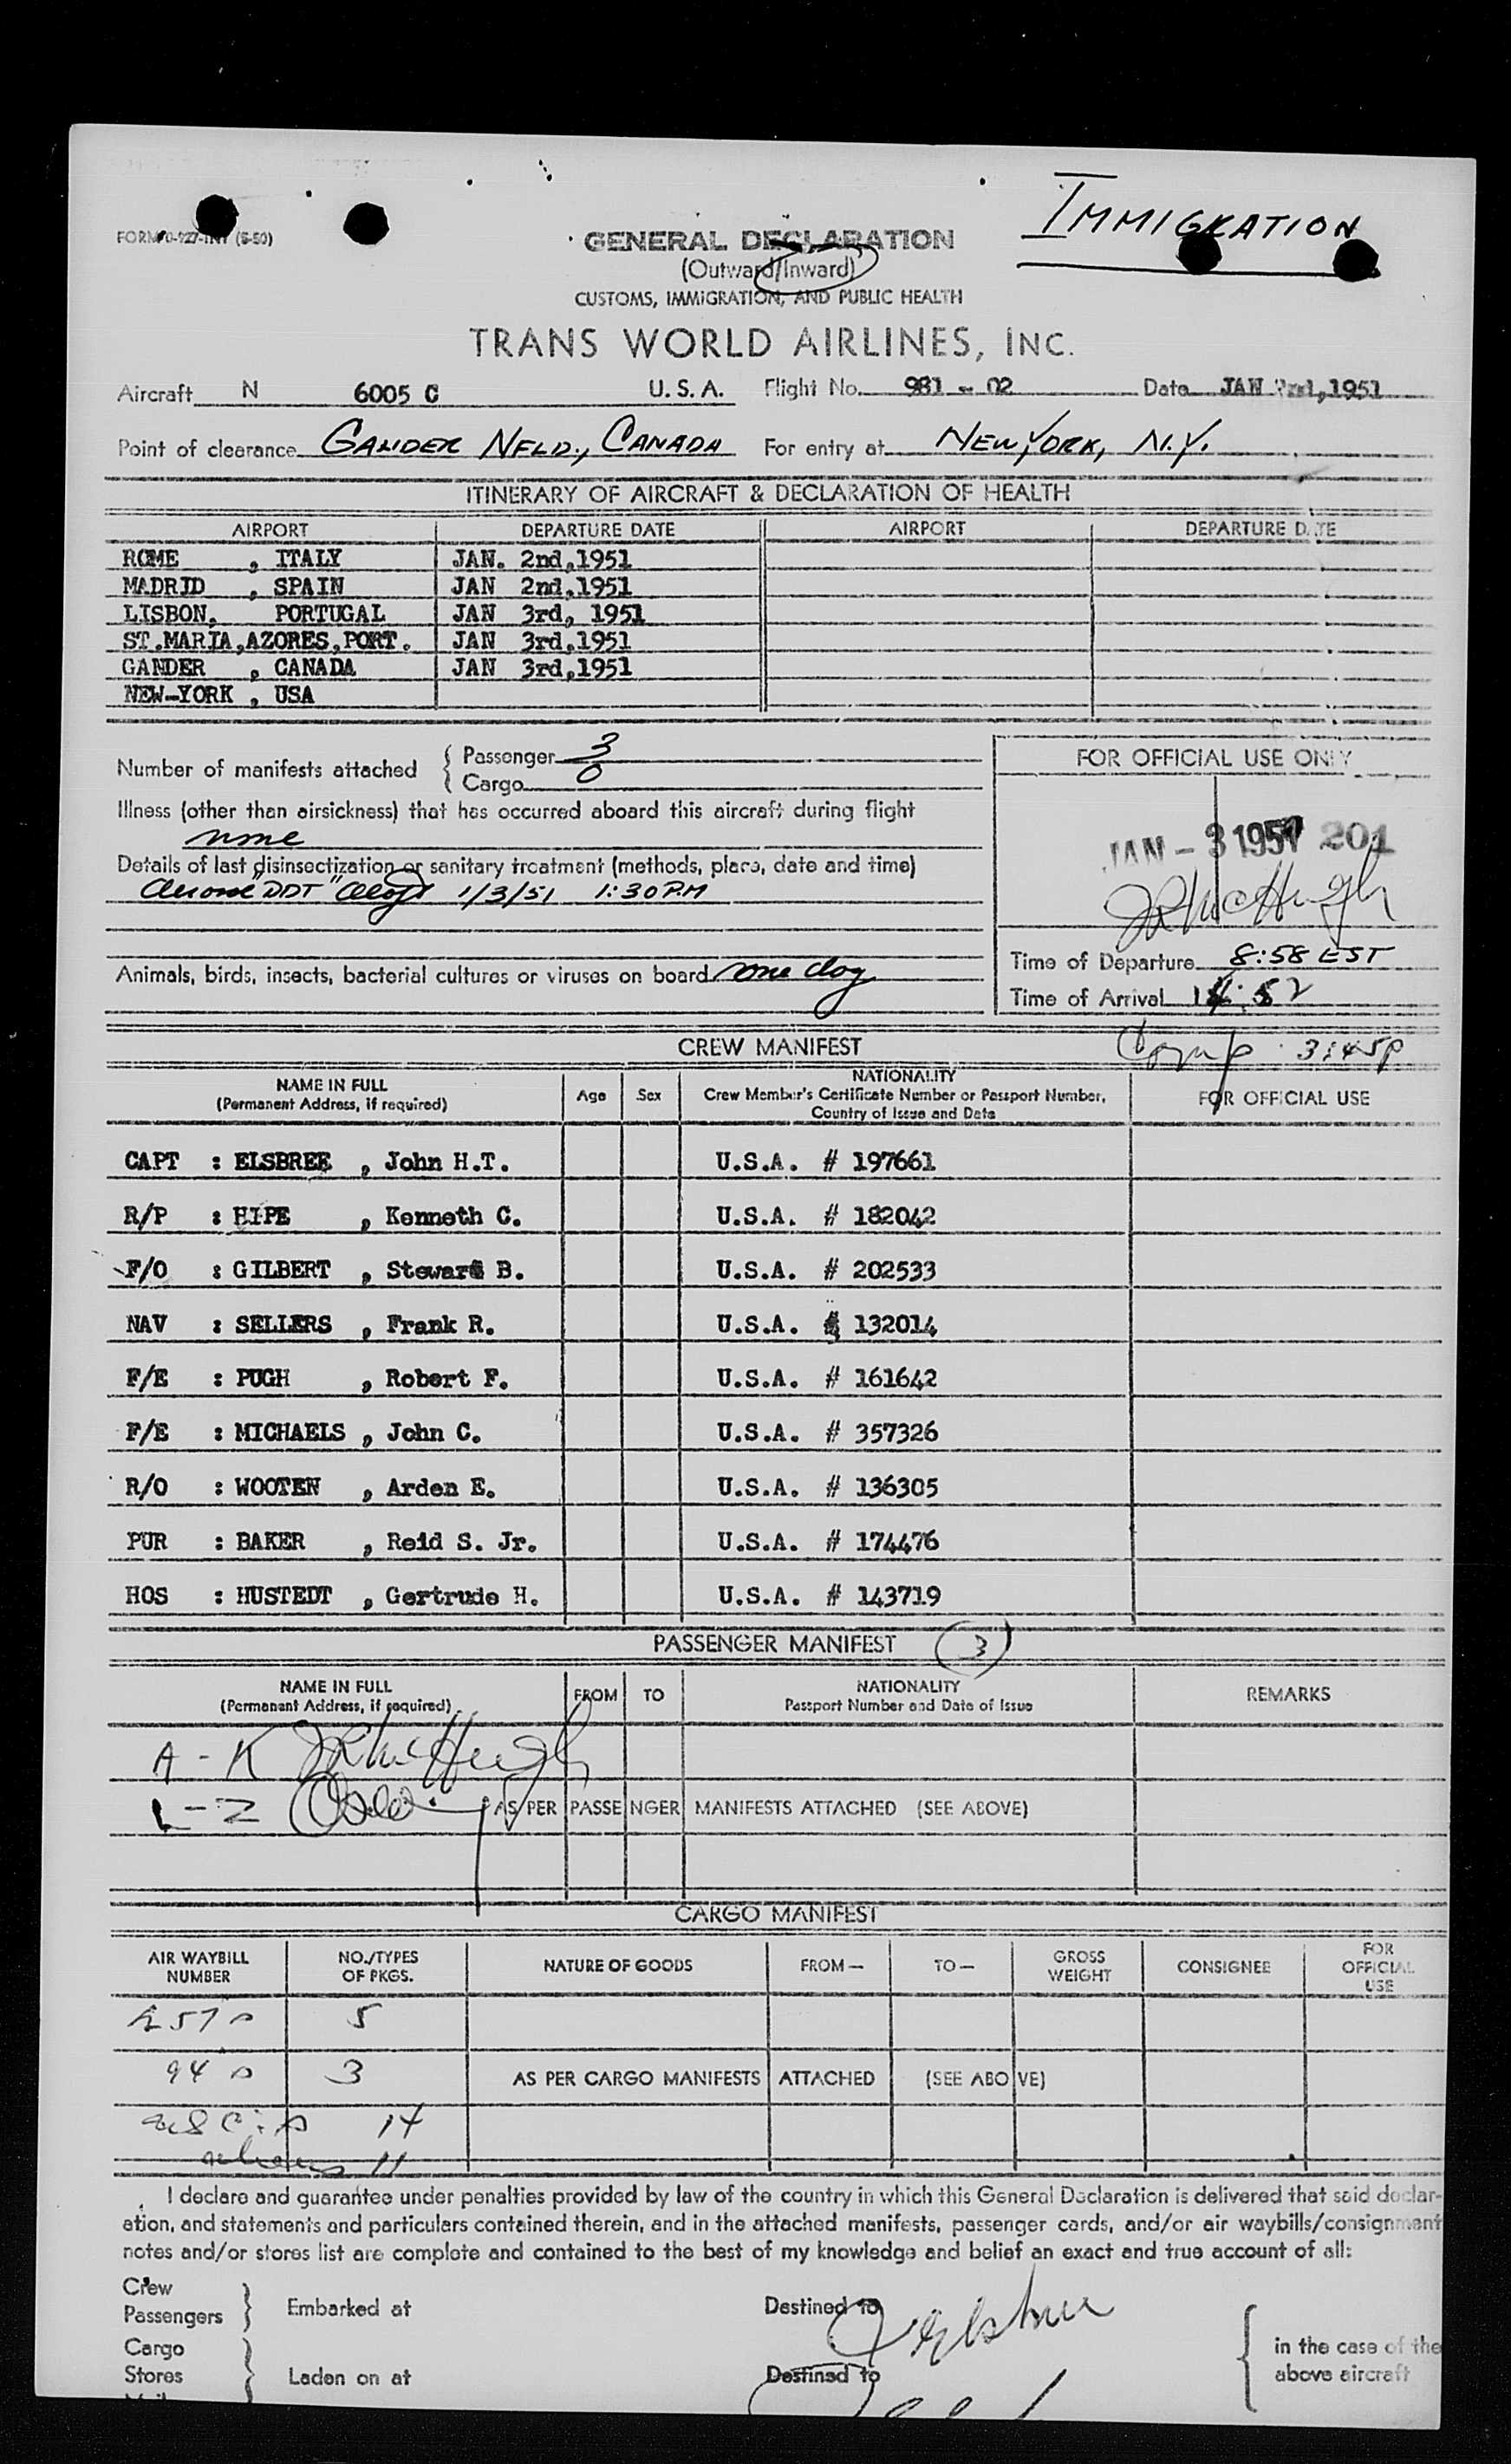 IMMIGRATION
FORM 0-927-INT (5-50)
GENERAL DECLARATION
(Outward/Inward)
CUSTOMS, IMMIGRATION, AND PUBLIC HEALTH
TRANS WORLD AIRLINES, INC.
Aircraft N 6005 C U.S.A. Flight No. 981 - 02 Date JAN 2nd, 1951
Point of clearance GANDER NFLD., CANADA For entry at NEW YORK, N.Y.
ITINERARY OF AIRCRAFT & DECLARATION OF HEALTH
AIRPORT DEPARTURE DATE AIRPORT DEPARTURE DATE
ROME , ITALY JAN. 2nd,1951
MADRID , SPAIN JAN 2nd,1951
LISBON, PORTUGAL JAN 3rd, 1951
ST.MARIA,AZORES,PORT. JAN 3rd,1951
GANDER , CANADA JAN 3rd,1951
NEW-YORK , USA
Number of manifests attached { Passenger 3
Cargo 0
Illness (other than airsickness) that has occurred aboard this aircraft during flight
none
Details of last disinsectization or sanitary treatment (methods, place, date and time)
"DDT" 1/3/51 1:30 P.M
Animals, birds, insects, bacterial cultures or viruses on board one dog
FOR OFFICIAL USE ONLY
JAN - 3 1951 201
JRMcHugh
Time of Departure 8:58 EST
Time of Arrival 14:52
CREW MANIFEST Comp 3:45p
NAME IN FULL
(Permanent Address, if required)
Age Sex
NATIONALITY
Crew Member's Certificate Number or Passport Number,
Country of Issue and Date
FOR OFFICIAL USE
CAPT : ELSBREE , John H.T. U.S.A. # 197661
R/P : HIPE , Kenneth C. U.S.A. # 182042
F/O : GILBERT , Stewart B. U.S.A. # 202533
NAV : SELLERS , Frank R. U.S.A. # 132014
F/E : PUGH , Robert F. U.S.A. # 161642
F/E : MICHAELS , John C. U.S.A. # 357326
R/O : WOOTEN , Arden E. U.S.A. # 136305
PUR : BAKER , Reid S. Jr. U.S.A. # 174476
HOS : HUSTEDT , Gertrude H. U.S.A. # 143719
PASSENGER MANIFEST 3
NAME IN FULL
(Permanent Address, if required)
FROM TO
NATIONALITY
Passport Number and Date of Issue
REMARKS
A - K JRMcHugh
L - Z AS PER PASSENGER MANIFESTS ATTACHED (SEE ABOVE)
CARGO MANIFEST
AIR WAYBILL NUMBER
NO./TYPES OF PKGS.
NATURE OF GOODS
FROM—
TO—
GROSS WEIGHT
CONSIGNEE
FOR OFFICIAL USE
5
94 3 AS PER CARGO MANIFESTS ATTACHED (SEE ABOVE)
14
11
I declare and guarantee under penalties provided by law of the country in which this General Declaration is delivered that said declar-
ation, and statements and particulars contained therein, and in the attached manifests, passenger cards, and/or air waybills/consignment
notes and/or stores list are complete and contained to the best of my knowledge and belief an exact and true account of all:
Crew
Passengers } Embarked at Destined to
Cargo
Stores } Laden on at Destined to
{ in the case of the
above aircraft